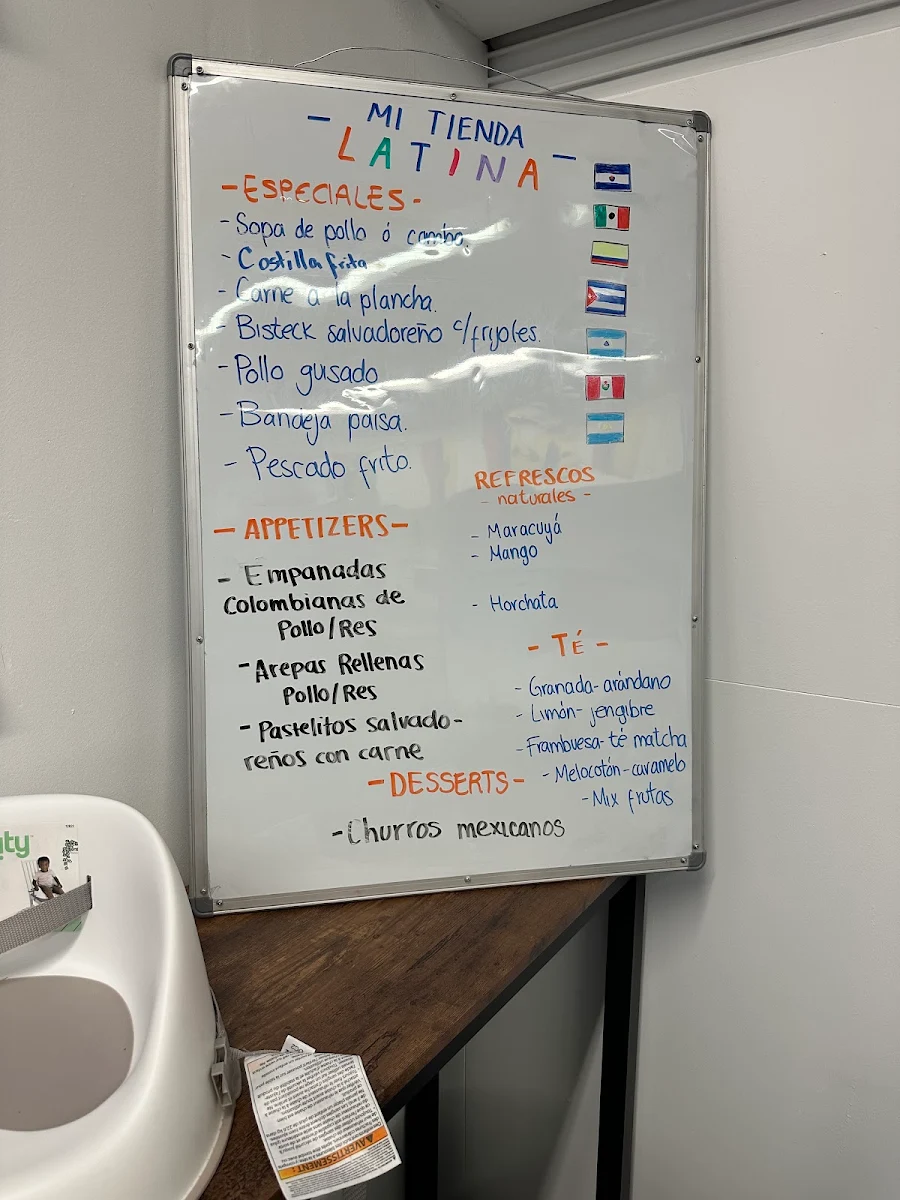 - MI TIENDA -
LATINA
- ESPECIALES -
- Sopa de pollo ó
- Costilla frita
- Carne a la plancha.
- Bisteck salvadoreño c/frijoles.
- Pollo gusado
- Bandeja paisa.
- Pescado frito.
REFRESCOS
- naturales -
- Maracuyá
- Mango
- Horchata
- APPETIZERS -
- Empanadas
Colombianas de
Pollo/Res
- Arepas Rellenas
Pollo/Res
- Pastelitos salvado-
reños con carne
- TÉ -
- Granada - arándano
- Limón - jengibre
- Frambuesa - té matcha
- Melocotón - caramelo
- Mix frutas
- DESSERTS -
- Churros mexicanos
ity
AVERTISSEMENT: